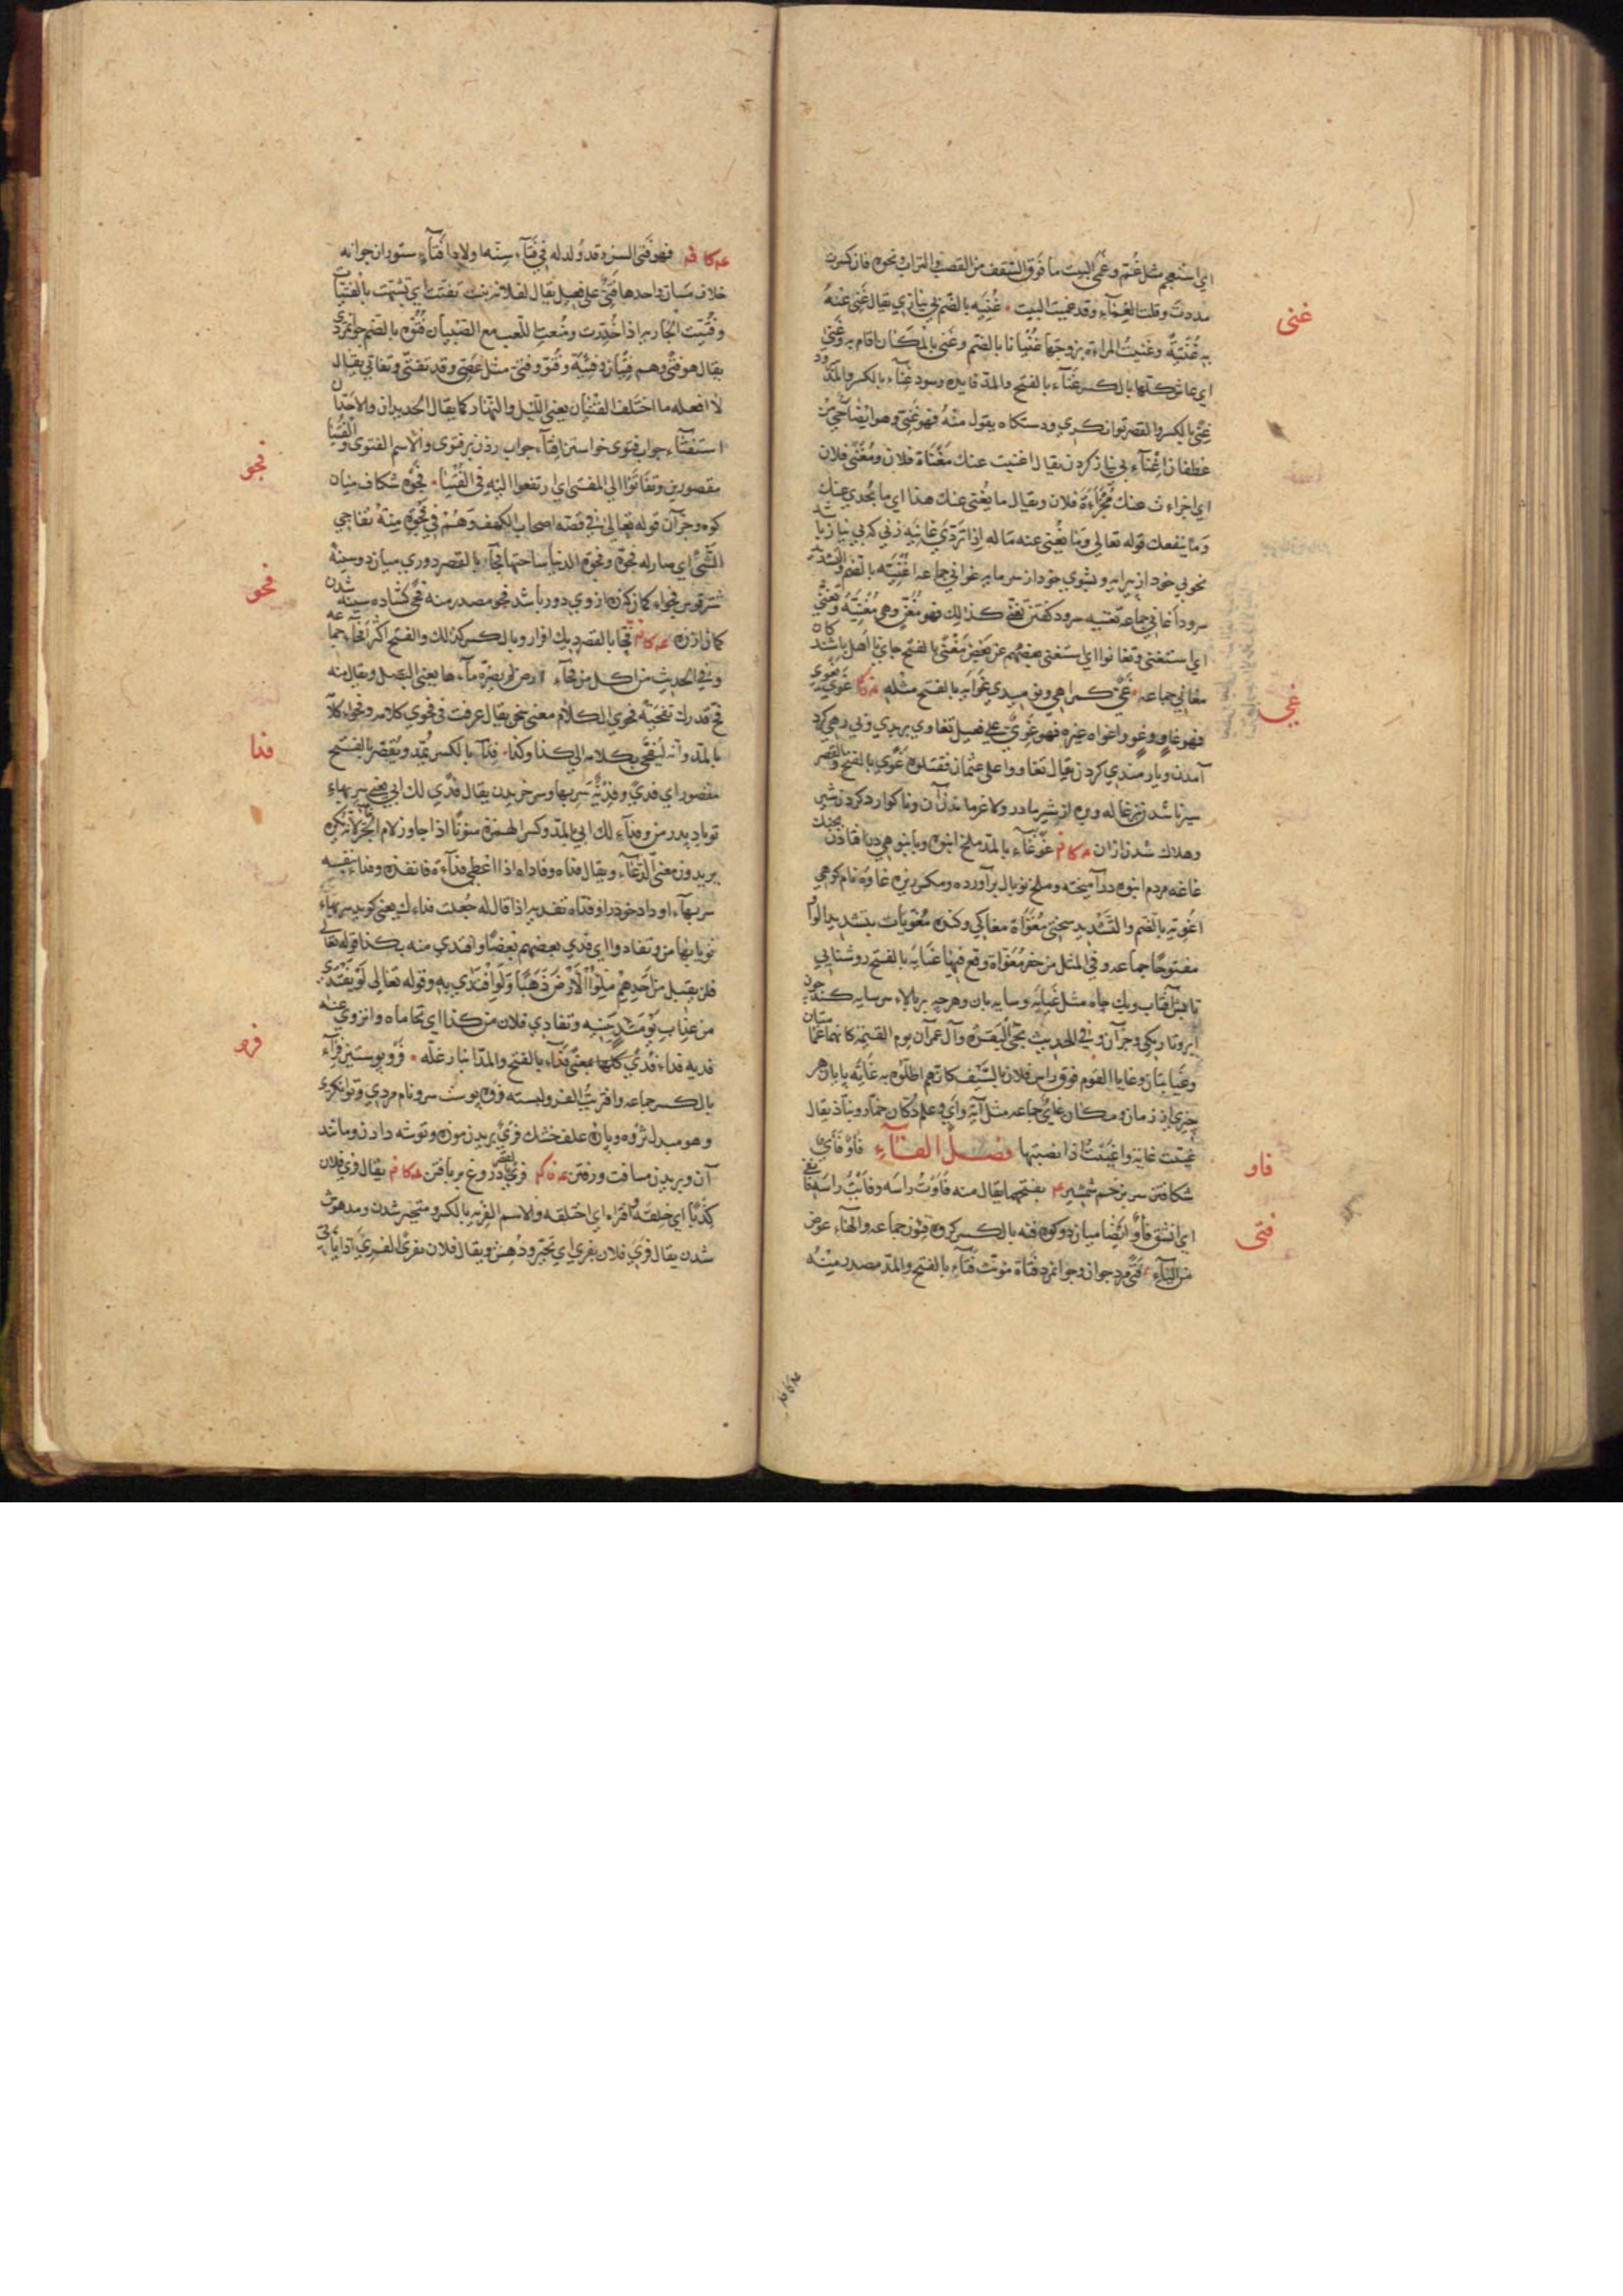 اي استعجم مثل غُمّ وغَمَى البيت ما فوق السّقف من القصب والتراب ونحوه فان كسرت
غنى
مددت وقلت الغِمَاء وقد غميت البيت غُنْيَه بالضم بي نيازي يقال غَنِي عنهُ
به غُنْيَةٌ وغنيتْ المراة بزوجها غُنْيانا بالضم وغَنِي بالمكان اقام به وغَنِيَ
اي عاش كلتها بالكسر غَنآء بالفتح والمد فايده وسود غِنآء بالكسر والمد سرود
غِنًى بالكسر والقصر توانكري ودستكاه يقول منه فهو غَنِيّ وهو ايضا حيّ من
غطفان اِغْنآء بي نياز كردن يقال اغنيت عنك مَغْنَاة فلان ومُغْنَى فلان
اي اجزاءت عنك مُجْزَاءَة فلان ويقال ما يُغْنى عنك هذا اي ما يُجْدي عنك
وما ينفعك قوله تعالى وما يُغْنِي عنه ماله اِذا تَرَدّي غانيَه زني كه بي نياز باشد
بخوبي خود از پيرايه وبشوي خود از سرمايه غواني جماعه اُغْنِيَّه بالضم والتشديد
سرود اَغاني جماعه تغنيه سرود كفتن تغنّي كذلك فهو مُغَنٍّ وهي مُغَنِّيَةٌ وتَغَنَّى
اي استغنى وتغانوا اي استغنى بعضهم عن بعض مَغْنًى بالفتح جاي با اهل باشند كان
غي
مغاني جماعه غَيّ كمراهي ونوميدي غَوايَه بالفتح مثله غَوِيَ يَغْوِي
فهو غاوٍ وغَوٍ واغواه غيره فهو غَوِيّ على فعيل تغاوي بر بدي وبي رهي كرد
آمدن ويارمندي كردن يقال تغاووا على عثمان فقتلوه غَوًى بالفتح والقصر
سير ناشدن بزغاله وبره از شير مادر ولاغر ماندن آن وناكوارد كردن شير
وهلاك شدن ازان غَوْغَآء بالمد ملخ انبوه وبانبوهي در افتادن
غاغه مردم انبوه درآميخته وملخ نوبال برآورده ومكس ريزه غاوَة نام كوهي
اُغْوِيَه بالضم والتّشديد سختى مُغَوَّاة مغاكي وكنده مُغَوَّيَات بتشديد الواو
مفتوحًا جماعه وفي المثل من حفر مُغَوّاة وقع فيها غَيايَه بالفتح روشنايي
تابش آفتاب وتك چاه مثل غَيابَة وسايه بان وهرچه بر بالاء سر سايه كند چون
ابر وتاريكي وجز آن وفي الحديث تجيْ البقرة وآل عمران يوم القيمة كانهما غمامتان
وغيابتان وغايا القوم فوق راس فلان بالسّيف كانهم اظلّوه به غَايَة پايان هر
چيزي از زمان ومكان غَايٌ جماعه مثل آية واَيٌ وعلم دكان خمار وبنّاد يقال
فاو
غيّيت غاية واغييتُ اذا نصبتها فصــل الفــآء فَاوٌ فَأْيٌ
شكافتن سر بزخم شمشير بفتحهما يقال منه فَاَوْتُ راسَه وفَاَيْتُ راسَه
فتى
اي انشق فَاْوٌ ايضًا ميان دو كوه فئه بالكسر كروه فِئون جماعه والهآء عوض
من اليآء فَتًى مرد جوان وجوانمرد فَتاة مونّث فَتآء بالفتح والمد مصدر منه
فهو فَتِيّ السن وقد وُلد له في فَتَآء سِنّه اولاد اَفْتآء ستوران جوانه
خلاف مَسَانّ واحدها فَتِيّ على فعيل يقال لفلانة بنت تفتّت اي تشبّهت بالفَتَيات
وفُتِّيَتِ الجارية اذا خُدِّرت ومُنعت اللّعب مع الصّبيان فُتُوَّه بالضم جوانمردي
يقال هو فتًى وهم فِتْيان وفِتْيَة وفُتُوّ وفُتِيّ مثل عُصِيّ وقد تفتّى وتفاتى يقال
لا افعله ما اختلف الفَتَيان يعني اللّيل والنّهار كما يقال الجديدان والاَجَدّان
استفتآء جواب فتوى خواستن اِفتآء جواب دادن بر فتوى والاسم الفتوى والفُتْيا
فجو
مقصورين وتفاتَوْا الى المفتى اي ارتفعوا اليه في الفُتْيا فَجْوَه شكاف ميان
كوه وجز آن قوله تعالى في قصّة اصحاب الكهف وَهُمْ فِي فَجْوَةٍ مِنْهُ تفاجي
الشّيْ اي صار له فَجْوَة وفجوة الدنيا ساحتها فَجًا بالقصر دوري ميان دو سينه
فحو
شتر قوس فجواء كمان كه زه از وي دور باشد فجو مصدر منه فَجّي كشاده سينه شدن
كمان از زه فَحَا بالقصر ديك افزار وبالكسر كذلك والفتح اكثر اَفحآء جماعه
وفي الحديث من اكل من فَحآء ارض لم يضرّه مآءها يعني البصل ويقال منه
فَحِّ قدرك تَفْحِيَة فحوى الكلام معنى سخن يقال عرفت في فحوى كلامه وفحواء كلامه
فدا
بالمد وانه ليُفَحّي بكلامه الى كذا وكذا فِدَآء بالكسر يُمَدّ ويُقصر بالفتح
مقصور اي فدى وفِدْيَة سَربها وسر خريدن يقال فَدًى لك ابي يعني سربهاء
تو باد پدر من وفداءٍ لك ابي بالمدّ وكسر الهمزة منونًا اذا جاوز لام الجرّ لانه نكره
يريدون معنى الدّعآء ويقال فداه وفاداه اذا اعطى فداءَه فانقذه وفداه بنفسه
سربهآء او داد خود را وفدّاه تفديه اذا قال له جُعلت فداءك يعني كويد سربهاء
تو بادا من وتفادوا اي فدى بعضهم بعضًا وافتدى منه بكذا قوله تعالى
فلن يقبل من اَحَدِهِمْ مِلْؤُا الْاَرْضِ ذَهَبًا وَلَوِ افْتَدَى بِهِ وقوله تعالى لَوْ يَفْتَدِي
من عذابِ يَوْمَئذٍ بِبَنِيهِ وتفادى فلان من كذا اي تحاماه وانزوى عنه
فرو
فديه فداء فُدى كلّها بمعنًى فَدَآء بالفتح والمدّ انبار غلّه فَرْو پوستين فِرآء
بالكسر جماعه وافتريتُ الفرو لبسته فَرْوَه پوست سر ونام مردي وتوانكري
وهو مبدل ثروه وپاره علف خشك فَرْيٌ بريدن موزه وتوشه دان وماننده
آن وبريدن مسافت ورفتن فري دروغ بربافتن يقال فرى فلان
كَذبًا اي خلقه وافتراه اي اختلقه والاسم الفِرْيَه بالكسر ومتحير شدن ومدهوش
شدن يقال فَرِيَ فلان يفرى اي تحيّر ودُهِش ويقال فلان يفري الفَرِيّ اذا ياتي